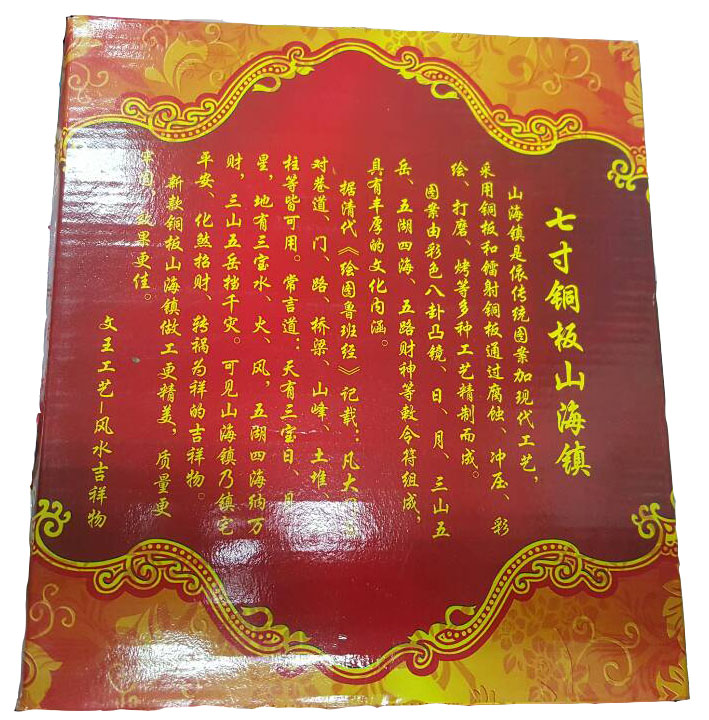 七寸铜板山海镇
山海镇是依传统图案加现代工艺，
采用铜板和镭射铜板通过腐蚀、冲压、彩
绘、打磨、烤等多种工艺精制而成。
图案由彩色八卦凸镜、日、月、三山五
岳、五湖四海、五路财神等敕令符组成，
具有丰厚的文化内涵。
据清代《绘图鲁班经》记载：凡大
对巷道、门、路、桥梁、山峰、土堆、
柱等皆可用。常言道：天有三宝日、月
星，地有三宝水、火、风，五湖四海纳万
财，三山五岳挡千灾。可见山海镇乃镇宅
平安、化煞招财、转祸为祥的吉祥物。
新款铜板山海镇做工更精美，质量更
牢固，效果更佳。
文王工艺—风水吉祥物